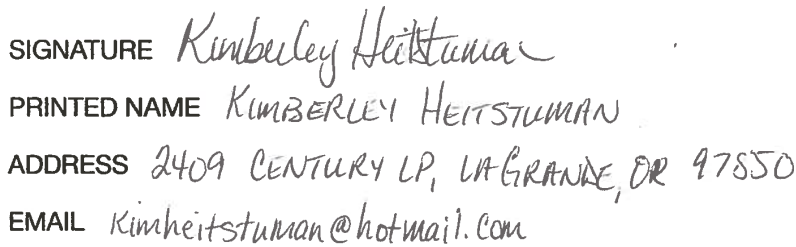 SIGNATURE Kimberley Heitstuman
PRINTED NAME KIMBERLEY HEITSTUMAN
ADDRESS 2409 CENTURY LP, LAGRANDE, OR 97850
EMAIL kimheitstuman@hotmail.com